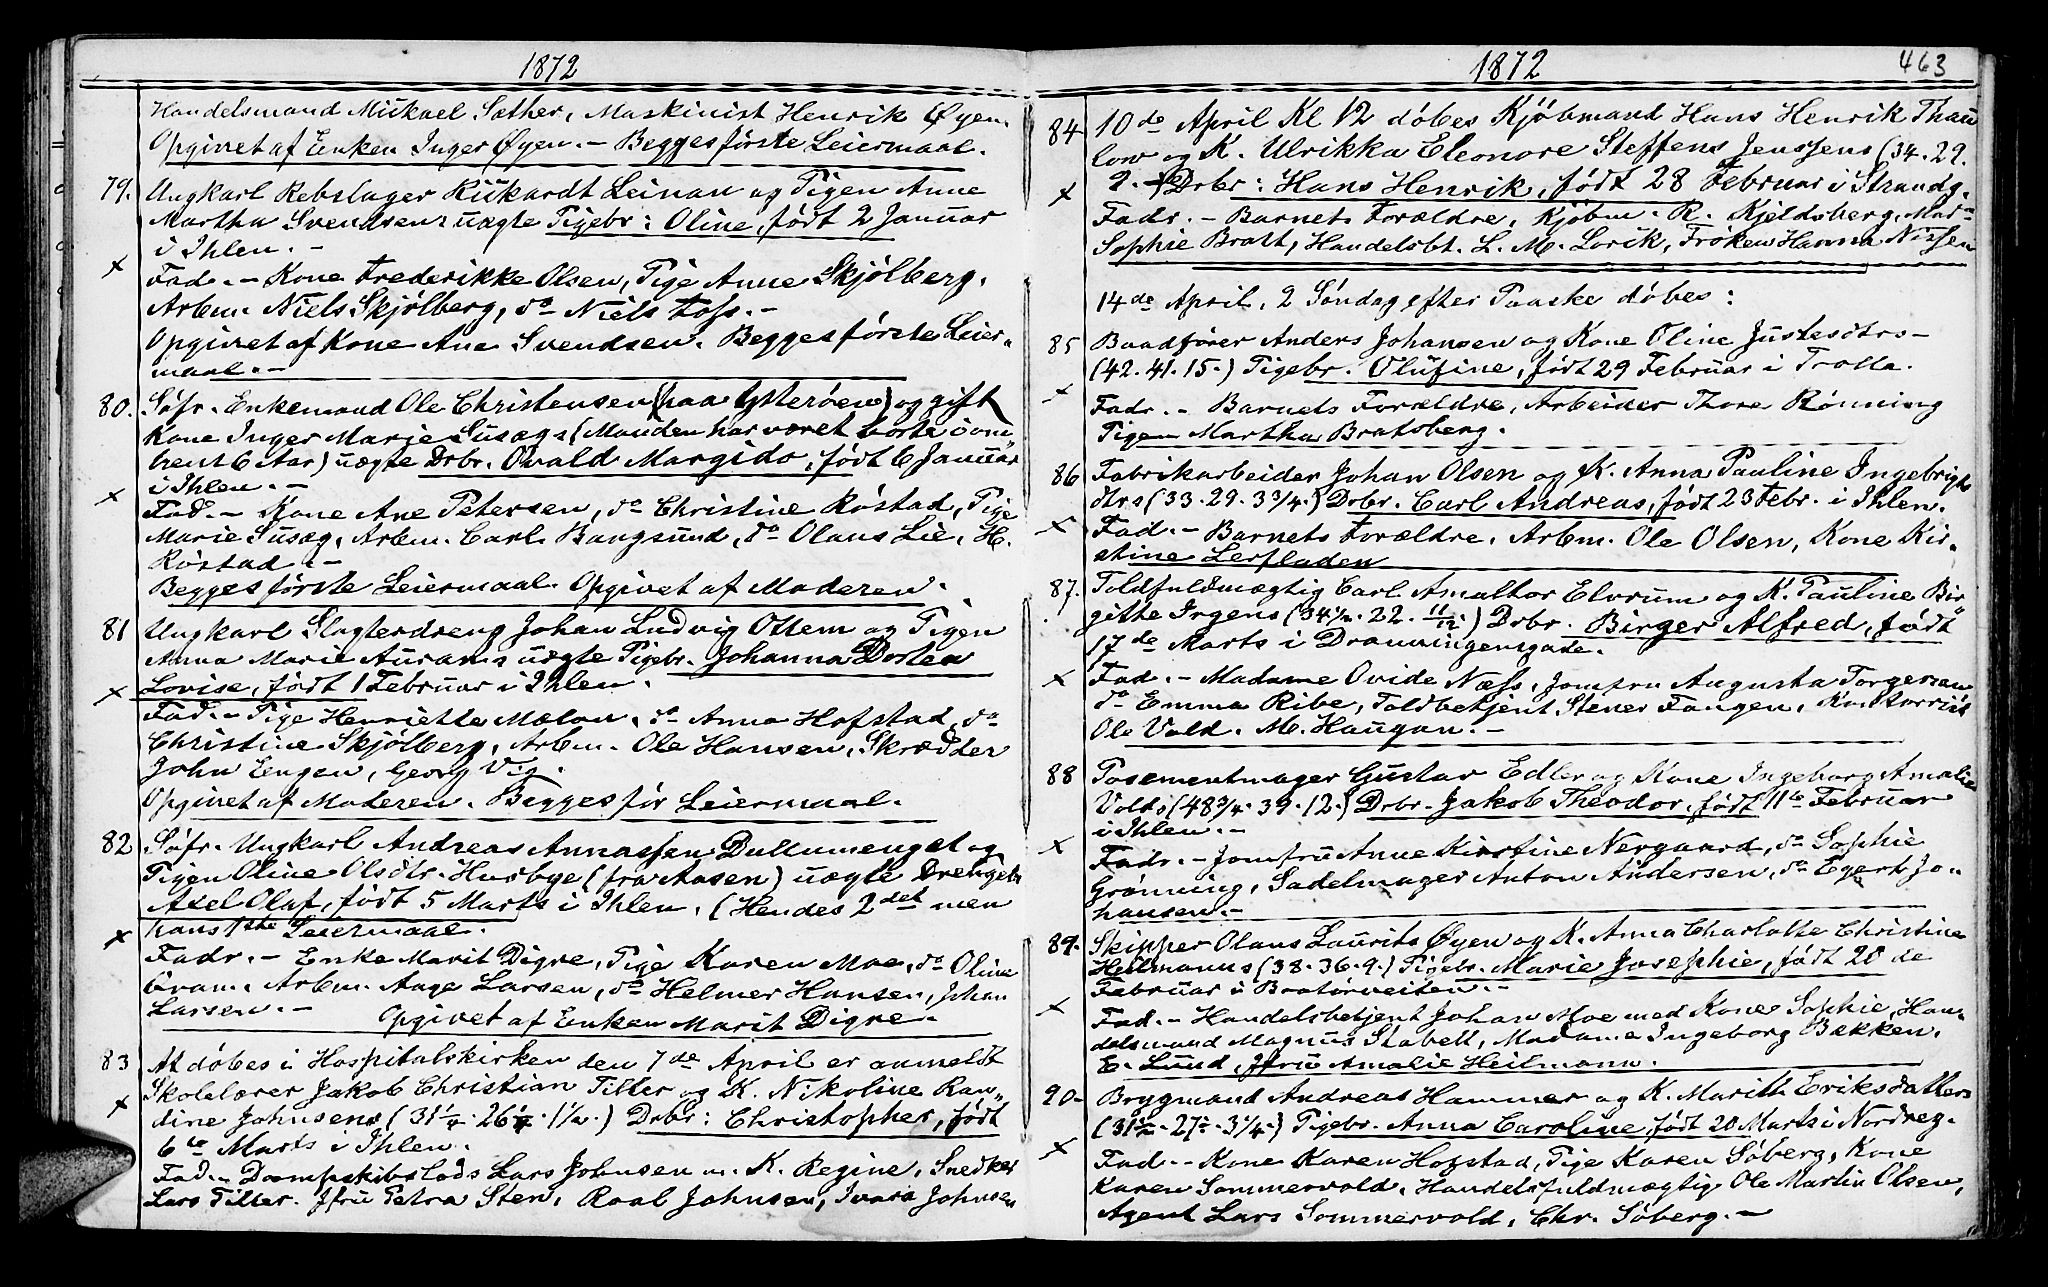 1872
Handelsmand Mickael Sæther, Maskinist Henrik Øyen.
Opgivet af Enken Inger Øyen. – Begges förste Leiermaal.
79. Ungkarl Rebslager Rickardt Leinan og Tigen Anne
Martha Svendsens uægte Pigebr: Oline, födt 2 Januar
i Ihlen. –
x
Fad. – Kone Frederikke Olsen, Pige Anne Skjölberg.
Arbm. Niels Skjölberg, do Niels Foss. –
Opgivet af Kone Ane Svendsen. Begges förste Leier-
maal. –
80. Söfr. Enkemand Ole Christensen (paa Ytteröen) og gift
Kone Inger Marie Susægs (Manden har været borte
6 Aar) uægte Drbr. Ovald Margido, födt 6 Januar
i Ihlen. –
x
Fad. – Kone Ane Petersen, do Christine Röstad, Pige
Marie Susæg, Arbm. Carl Bangsund, do Olaus Lie, H.
Röstad. –
Begges förste Leiermaal. Opgivet af Moderen.
81 Ungkarl Slagterdreng Johan Ludvig Ottem og Pigen
Anna Marie Aurans uægte Pigebr. Johanna Dortea
Lovise, födt 1 Februar i Ihlen.
x
Fad. – Pige Henriette Mælan, do Anna Hofstad, do
Christine Skjölberg, Arbm. Ole Hansen, Skrædder
John Engen, Georg Vig.
Opgivet af Moderen. Begges för Leiermaal.
82 Söfr. Ungkarl Andreas Annassen Dullumenget og
Pigen Oline Olsdtr. Husbye (fra Aasen) uægte Drengeb.
Axel Olaf, födt 5 Marts i Ihlen. (Hendes 2det men
hans 1ste Leiermaal.
x
Fadr. – Enke Marit Digre, Pige Karen Moe, do Oline
Gram, Arbm. Aage Larsen, do Helmer Hansen, Johan
Larsen. –
Opgivet af Enken Marit Digre.
83 At döbes i Hospitalskirken den 7de April er anmeldt
Skolelærer Jakob Christian Tiller og K. Nikoline Ran-
dine Johnsens (31¼. 26¼. 1½.) Drbr: Christopher, födt
x
6te Marts i Ihlen.
Fad. – Dampskibslods Lars Johnsen m. K. Regine, Snedker
Lars Tiller. Jfru Petra Sten, Roal Johnsen, Ivara Johnsen
1872
463
84 10de April Kl 12 döbes Kjöbmand Hans Henrik Thau
low og K. Ulrikka Eleonore Steffens Jenssens (34. 29.
9. – Drbr: Hans Henrik, födt 28 Februar i Strandg.
x
Fadr. – Barnets Forældre, Kjöbm. R. Kjeldsberg, Mad
Sophie Bratt, Handelsbt. L. M. Lorik, Fröken Hanna Nissen
14de April, 2 Söndag efter Paaske döbes:
85 Baadförer Anders Johansen og Kone Oline Justesdtrs –
(42. 41. 15.) Pigebr. Olufine, födt 29 Februar i Trolla.
x
Fadr. – Barnets Forældre, Arbeider Thore Rönning
Pigen Martha Bratsberg.
86 Fabrikarbeider Johan Olsen og K. Anna Pauline Ingebrigts
dtrs (33. 29. 3¾.) Drbr. Carl Andreas, födt 23 Febr. i Ihlen.
x
Fad. – Barnets Forældre, Arbm. Ole Olsen, Kone Kir-
stine Lerfladen
87. Toldfuldmægtig Carl Amaltor Elvrum og K. Pauline Bir
gitte Irgens (34½. 22. 11/12.) Drbr. Birger Alfred, födt
17de Marts i Dronningensgade.
x
Fad. – Madame Ovide Næss, Jomfru Augusta Torgersen
do Emma Ribe, Toldbetjent Stener Fangen,
Ole Vold. M. Haugan. –
88 Posementmager Gustav Edler og Kone Ingeborg Amalie
Volds (48¾. 39. 12.) Drbr. Jakob Theodor, födt 11te Februar
i Ihlen. –
x
Fadr. – Jomfru Anne Kirstine Nergaard, do Sophie
Grönning, Sadelmager Anton Andersen, do Egert Jo-
hansen. –
89. Skipper Olaus Laurits Øyen og K. Anna Charlotte Christine
Heilmanns (38. 36. 9.) Pigebr. Marie Josephie, födt 20 de
Februar i Bratörveiten. –
x
Fad. – Handelsbetjent Johan Moe med Kone Sophie, Han-
delsmand Magnus Stabell, Madame Ingeborg Bækken.
E. Lund, Jfru Amalie Heilmann.
90- Brygmand Andreas Hammer og K. Marith Eriksdatters
(31½. 27. 3¼.) Pigebr. Anna Caroline, födt 20 Marts i Nordreg.
x
Fad. – Kone Karen Hofstad, Pige Karen Söberg, Kone
Karen Sommervold, Handelsfuldmægtig Ole Martin Olsen,
Agent Lars Sommervold, Chr. Söberg. –